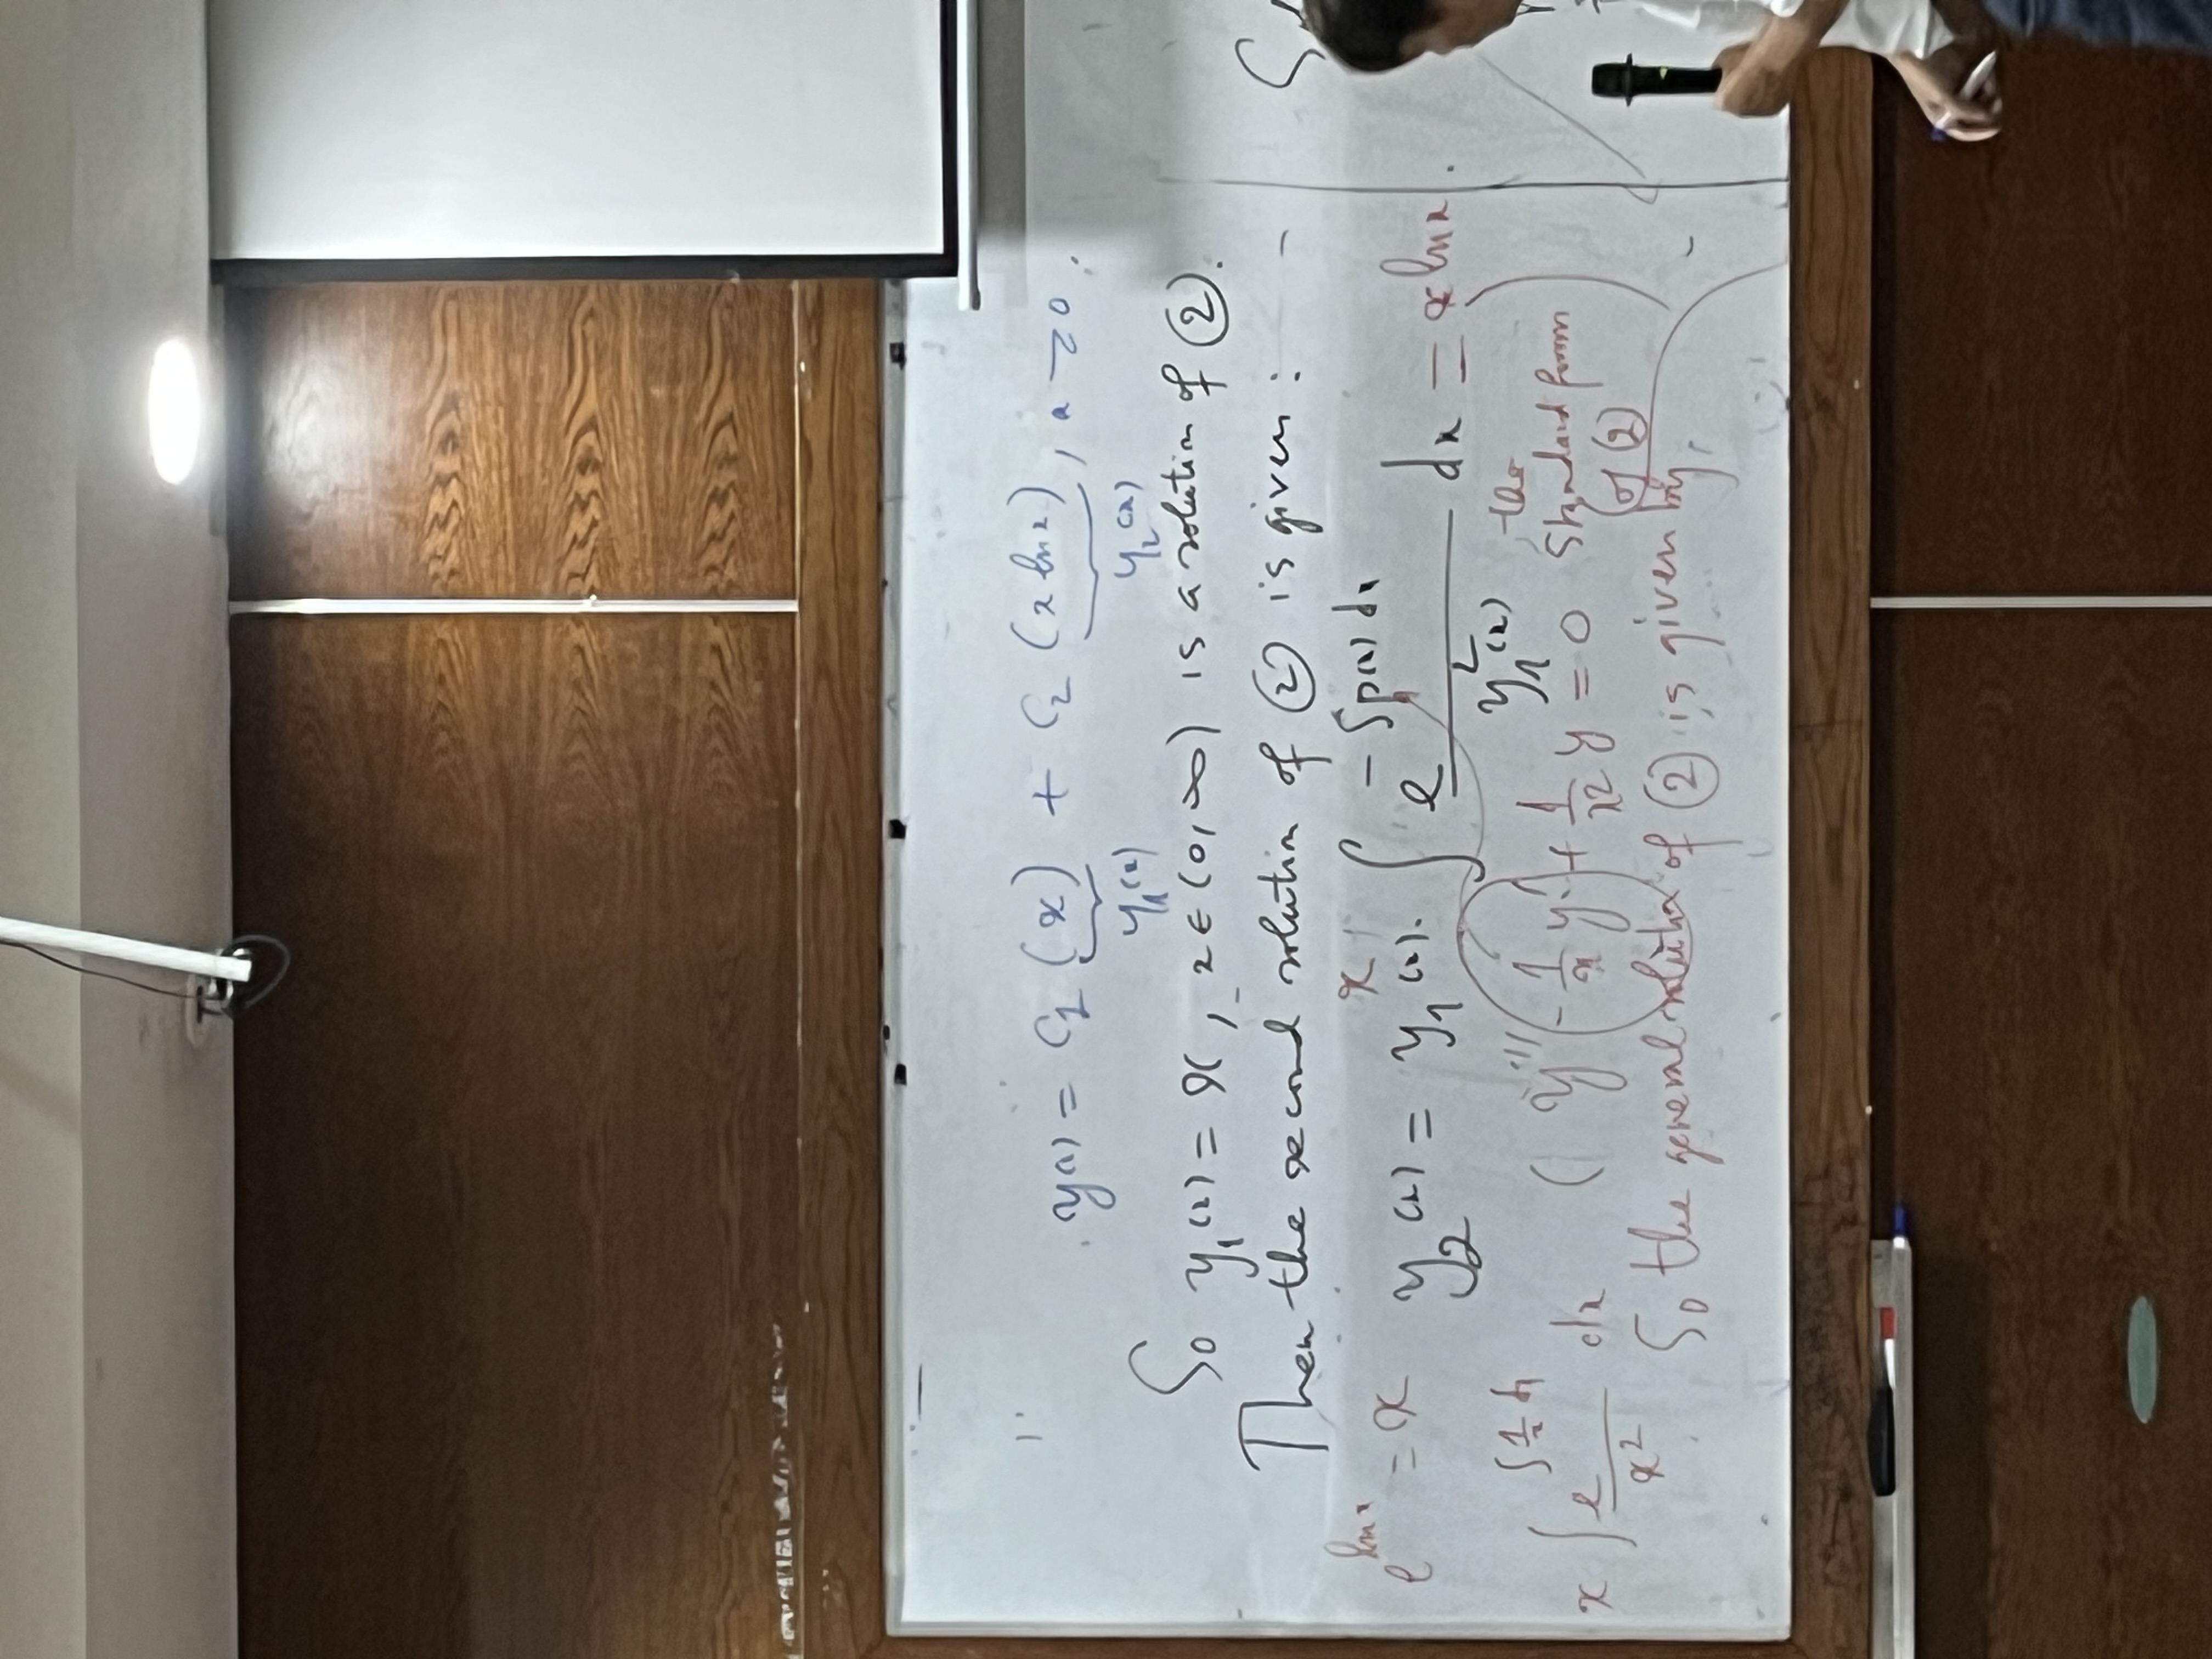 y(x) = C₁ (x) + C₂ (x ln x), x > 0.
y₁(x) y₂(x)
So y₁(x) = x, x ∈ (0, ∞) is a solution of ②.
Then the second solution of ② is given:
e^{ln x} = x
x
y₂(x) = y₁(x). ∫ e^{-∫p(x) dx} / y₁²(x) dx = x ln x.
x ∫ e^{∫ 1/x dx} / x² dx
( y'' - 1/x y' + 1/x² y = 0 the
standard form
of ② )
So the general solution of ② is given by,